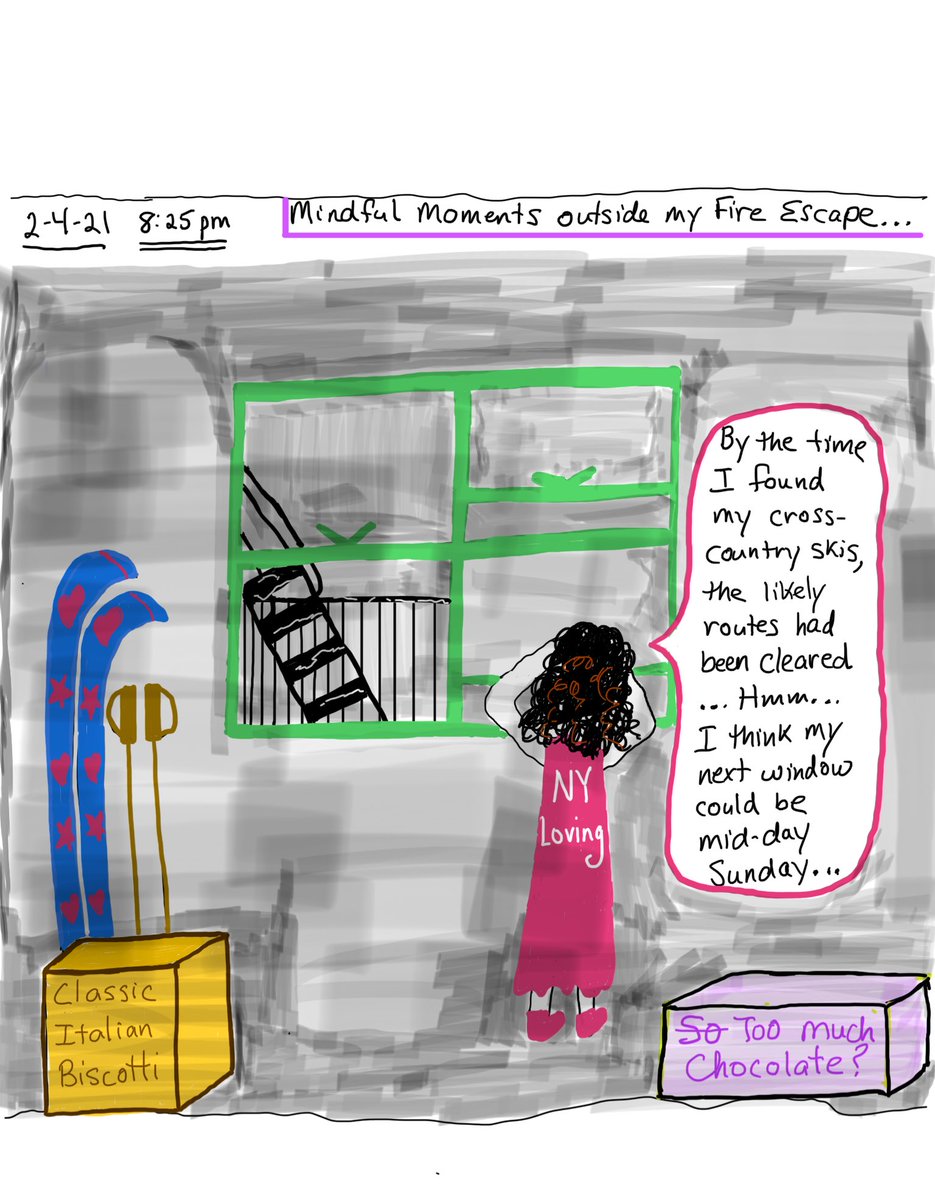 2-4-21 8:25pm Mindful Moments outside my Fire Escape...
By the time
I found
my cross-
country skis,
the likely
routes had
been cleared
... Hmm...
I think my
next window
could be
mid-day
Sunday...
NY
Loving
Classic
Italian
Biscotti
So Too much
Chocolate?